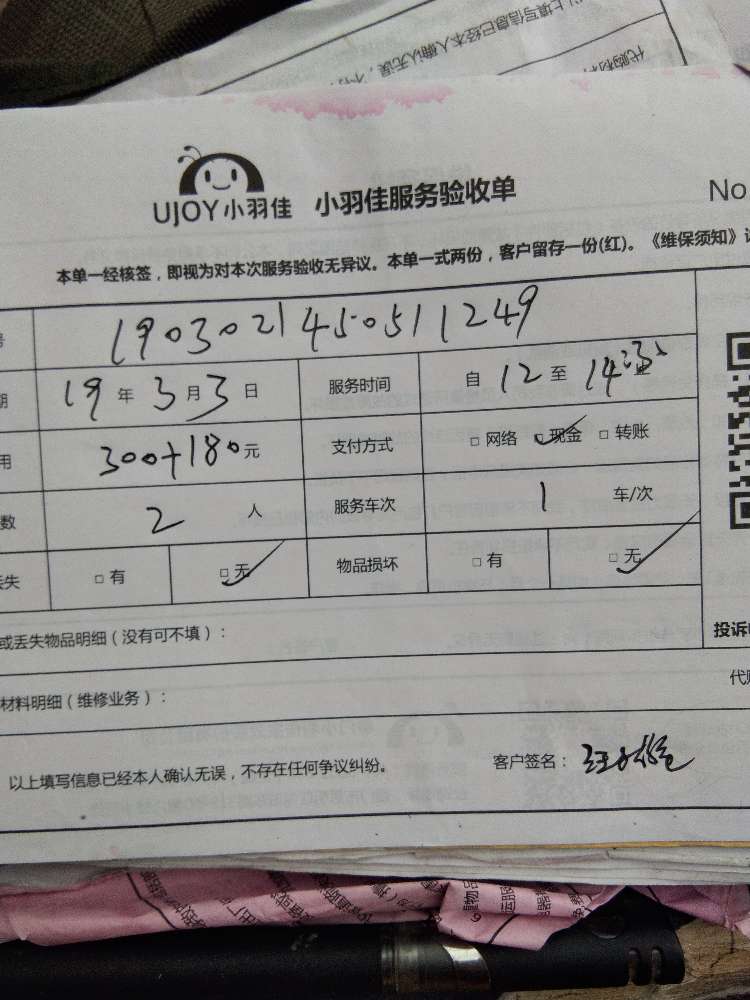 以上填写信息已经本人确认无误，不
代购材料
UJOY小羽佳 小羽佳服务验收单 No
本单一经核签，即视为对本次服务验收无异议。本单一式两份，客户留存一份(红)。《维保须知》
号 190302145051124​9
期 19 年 3 月 3 日 服务时间 自 12 至 14
用 300+180 元 支付方式 □ 网络 □ 现金 □ 转账
数 2 人 服务车次 1 车/次
丢失 □ 有 □ 无 物品损坏 □ 有 □ 无
或丢失物品明细（没有可不填）：
投诉
材料明细（维修业务）：
代购
以上填写信息已经本人确认无误，不存在任何争议纠纷。 客户签名：